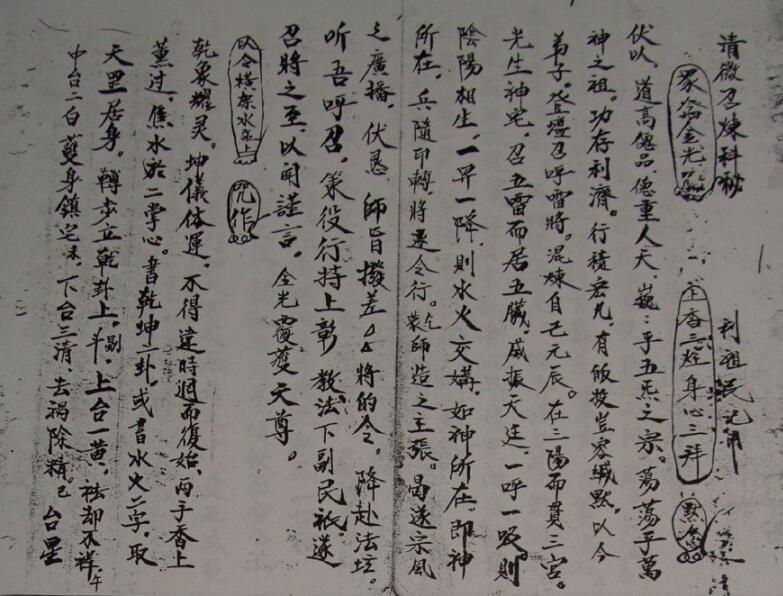 清微召煉科秘
利祖民記
眾念金光 主香三炷身心三拜 默念
伏以、道高僊品、德重人天、巍〻乎五炁之宗。蕩蕩乎萬
神之祖。功存利濟。行積宏九、有皈投豈容緘默。以今
弟子。登壇召呼雷將。混煉自己元辰。在三陽而貫三宮。
先生神宅、召五雷而居五臟。威振天廷、一呼一吸。則
陰陽相生、一昇一降、則水火交媾、如神所在、即神
所在、兵隨印轉將逐令行。乞師造之主張。曷遂宗風
之廣播、伏惥、師旨撥差△△將的令。降赴法坛。
听吾呼召。策役行持上彰教法下副民祇。遂
召將之至、以聞謹言。金光覆護天尊。
以令橫架水盂上 咒作
乾象耀灵。坤儀体運。不得違時週而復始、両手香上
薰过、焦水於二掌心。書乾坤二卦。或書水火二字。取
天罡居身。轉步立乾卦上。斗。剔上台一黄、祛却不祥。午
中台二白護身鎮宅未、下台三清、去祸除精。己台星